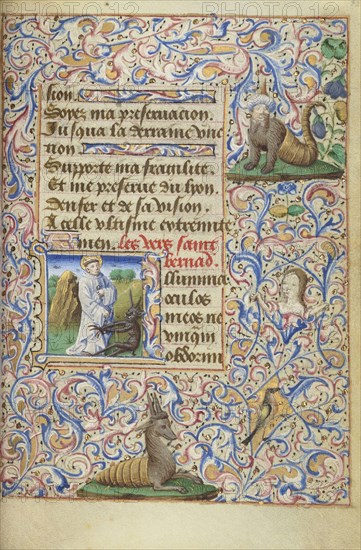 seon.
Soyez ma preservacion.
Jusqua la derraine unc
tion
Supporte ma fraiilite
Et me preserue du lyon.
Denfer et de sa vision.
A celle ultisme extremite
Amen. les vers saint
bernad.
Illumina
oculos
meos ne
unqui
obdormi